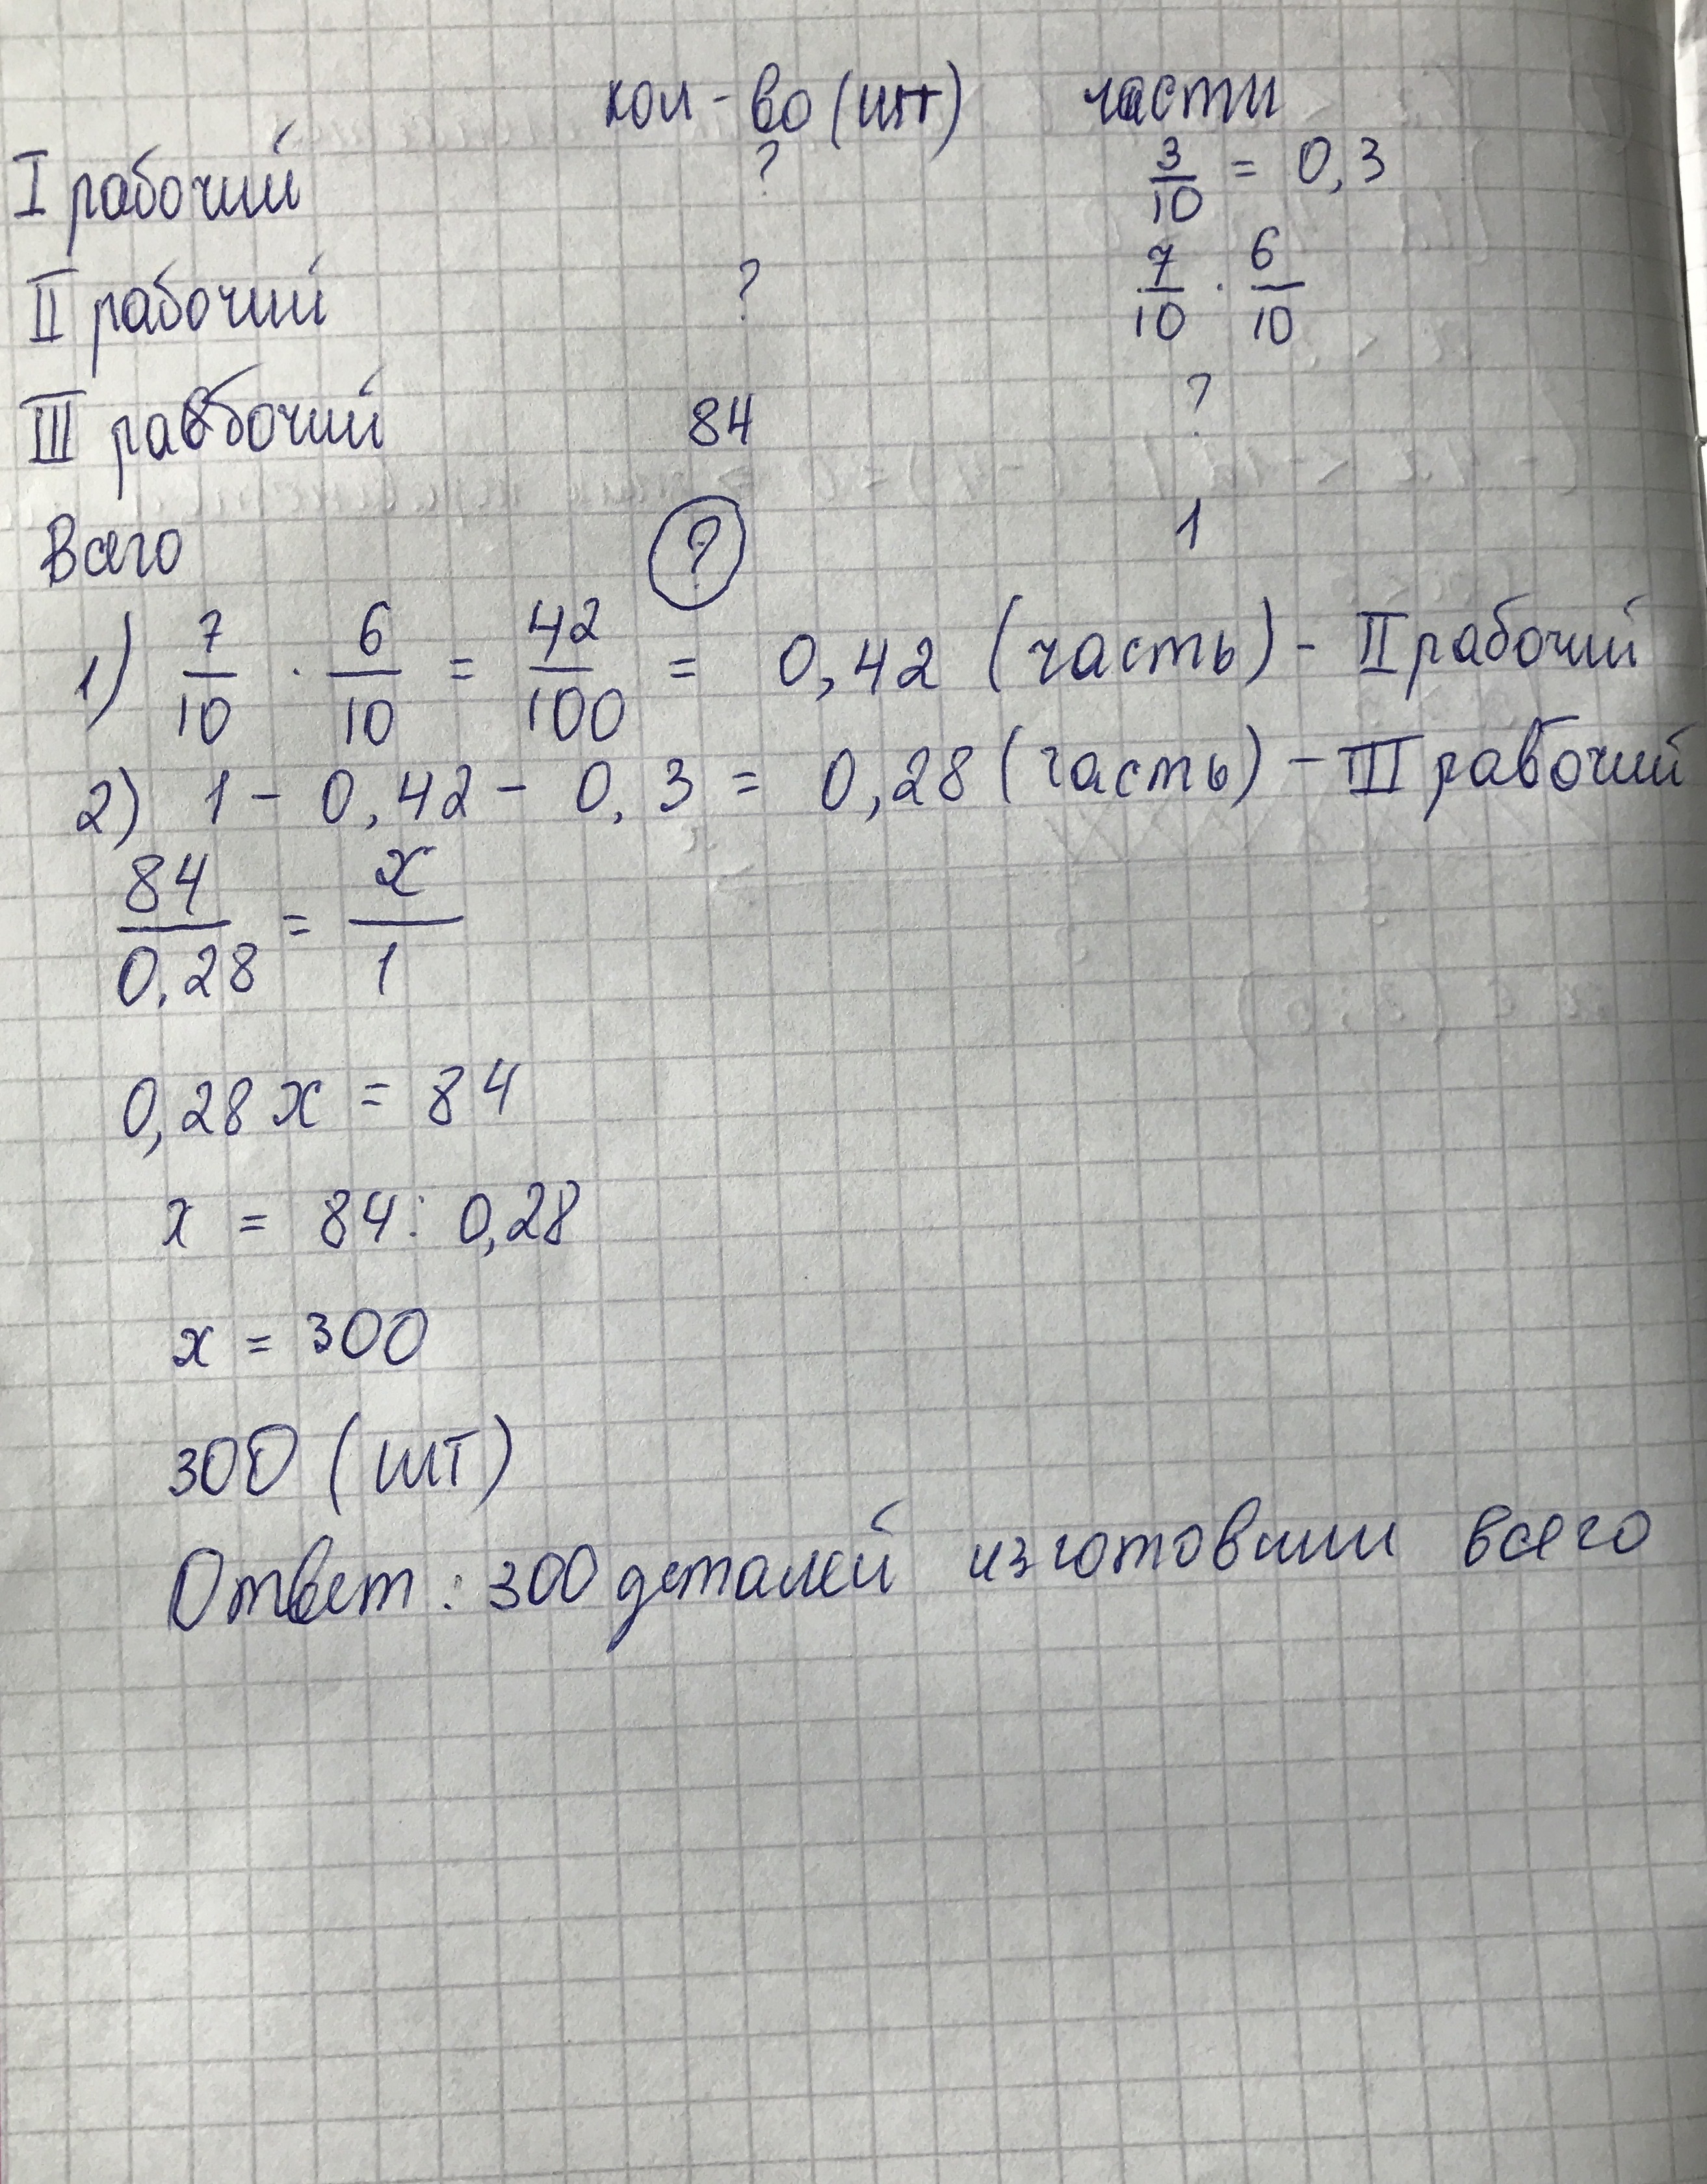 кол-во (шт) части
I рабочий ? 3/10 = 0,3
II рабочий ? 7/10 · 6/10
III рабочий 84 ?
Всего ? 1
1) 7/10 · 6/10 = 42/100 = 0,42 (часть) - II рабочий
2) 1 - 0,42 - 0,3 = 0,28 (часть) - III рабочий
84/0,28 = x/1
0,28 x = 84
x = 84 : 0,28
x = 300
300 (шт)
Ответ: 300 деталей изготовили всего